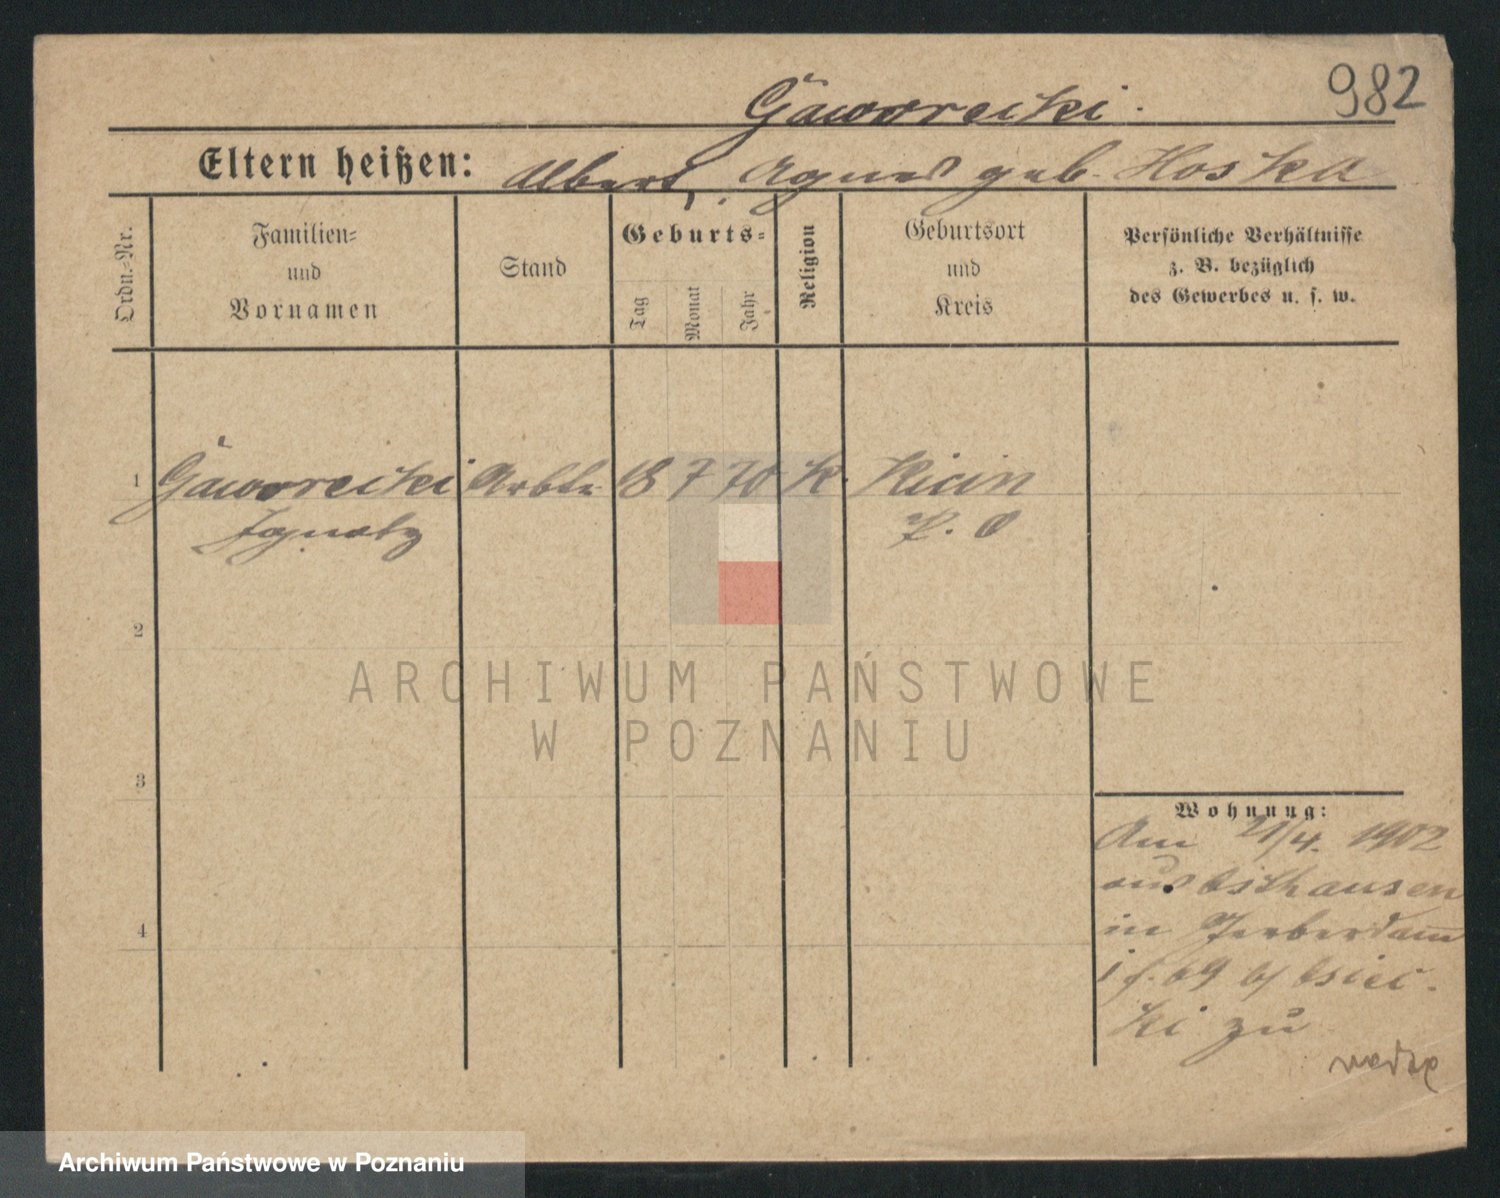 982
Gaworecki.
Eltern heißen: Albert, Agnes geb. Hoska
Ordn.-Nr.
Familien-
und
Vornamen
Stand
Geburts-
Tag
Monat
Jahr
Religion
Geburtsort
und
Kreis
Persönliche Verhältnisse
z. B. bezüglich
des Gewerbes u. s. w.
1 Gaworecki Arbtr 18 7 70 K. Kicin
Ignatz P. O
2
3
4
ARCHIWUM PAŃSTWOWE
W POZNANIU
Wohnung:
Am 21/4. 1902
aus
in
69 b/
ki zu
Archiwum Państwowe w Poznaniu